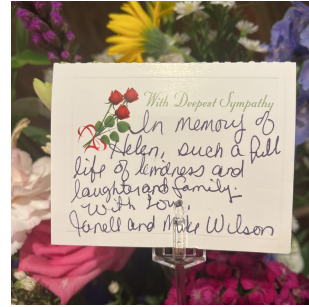 With Deepest Sympathy
In memory of
Helen, such a full
life of kindness and
laughter and family.
With love,
Janell and Mike Wilson